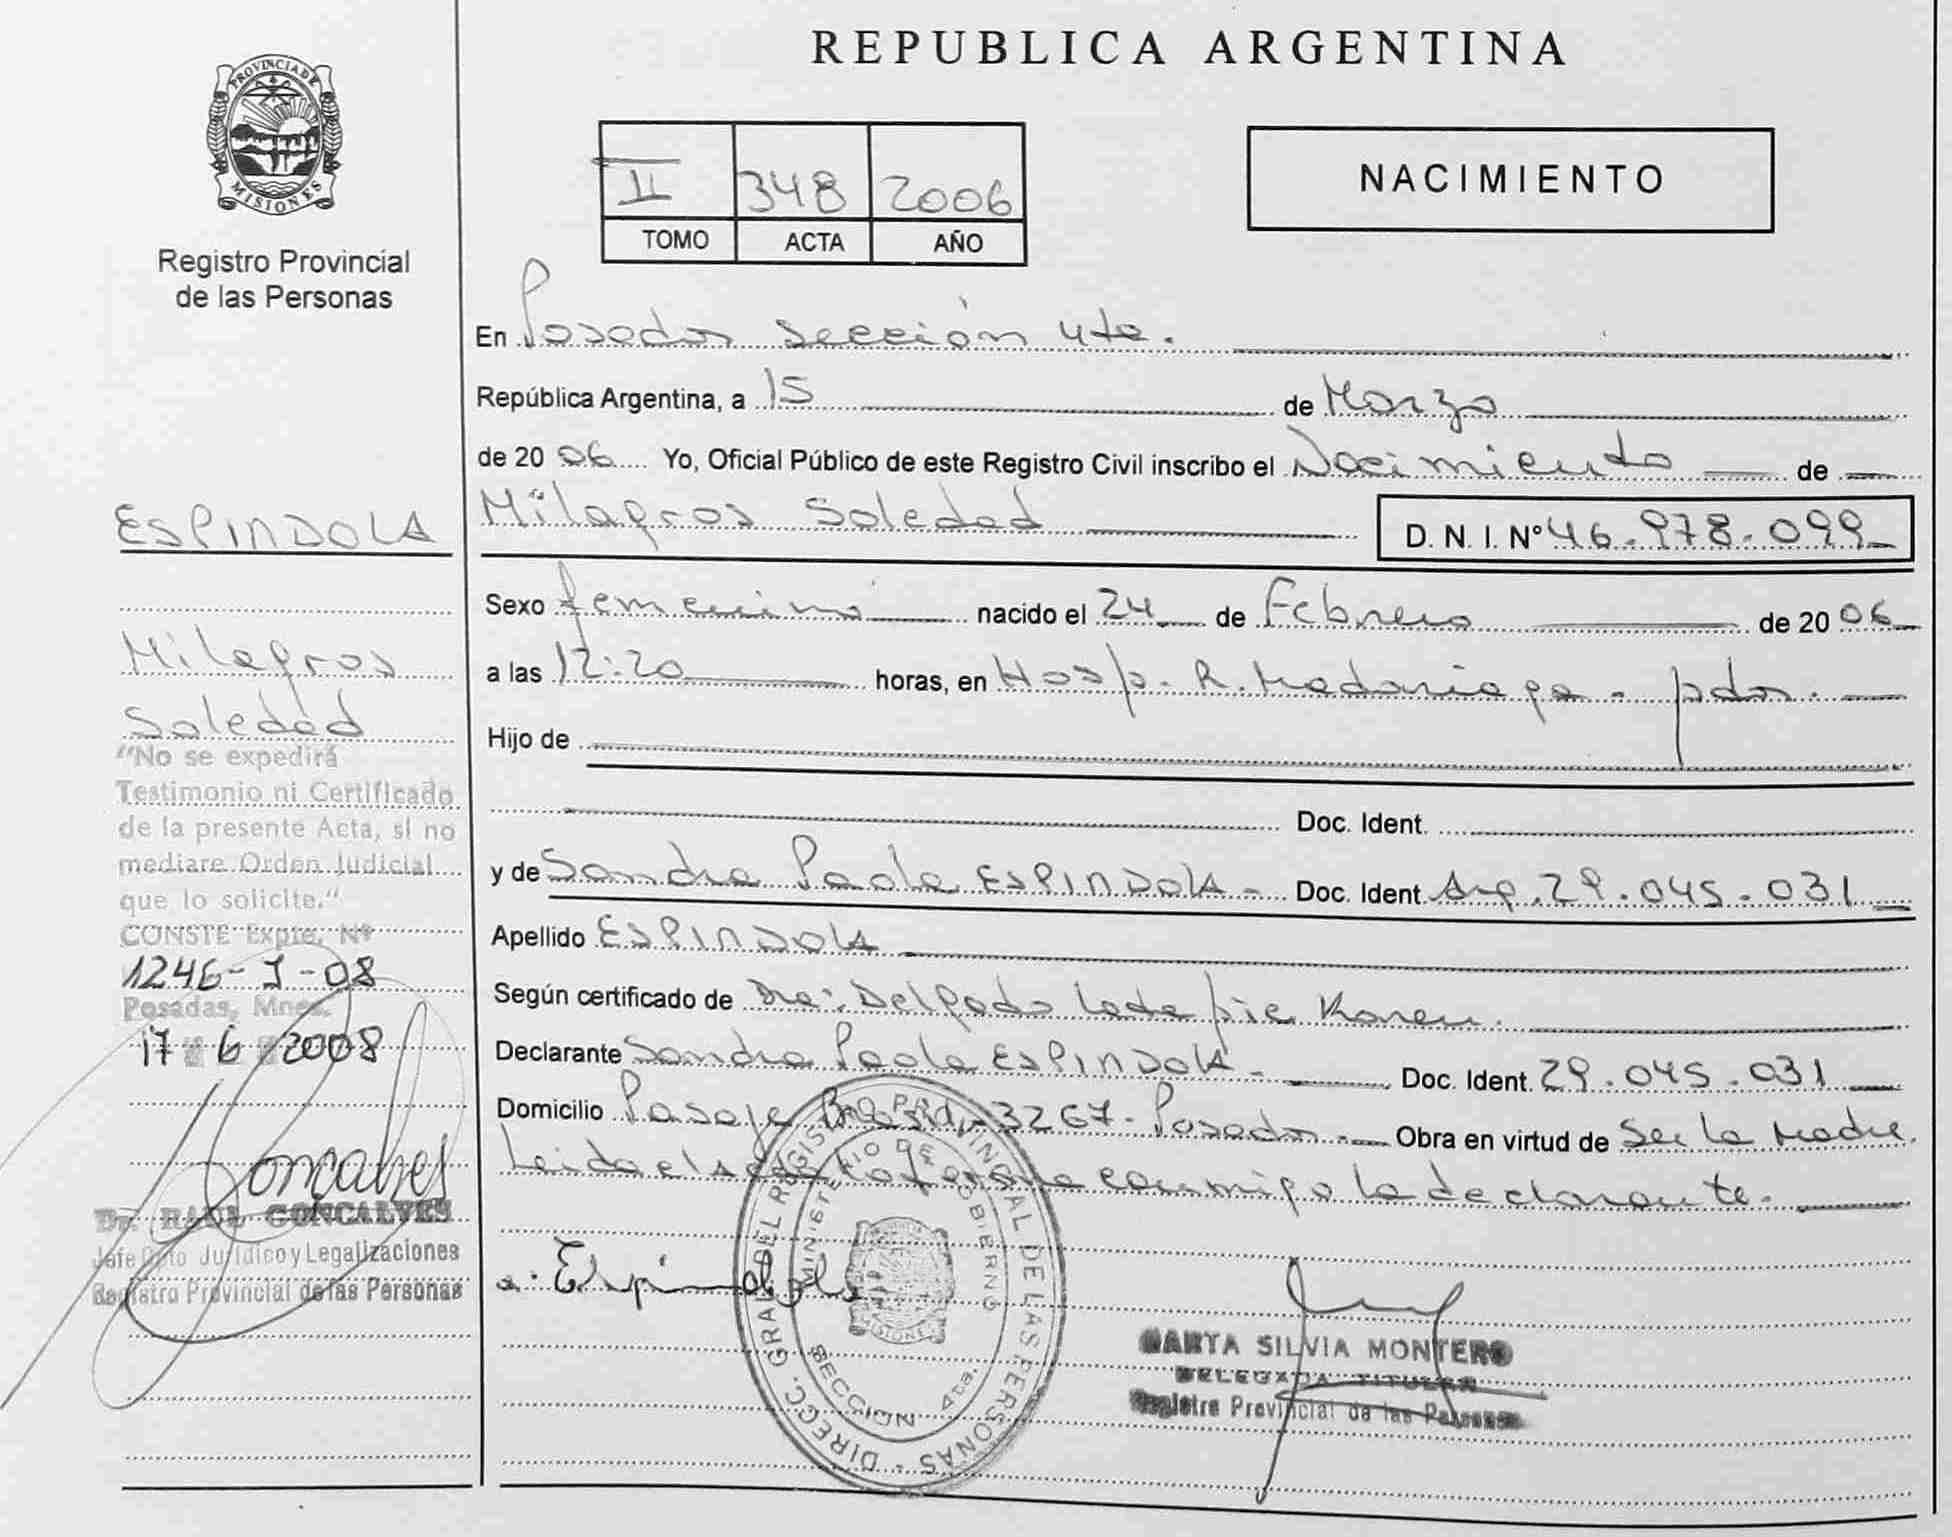 REPUBLICA ARGENTINA
PROVINCIA DE MISIONES
Registro Provincial
de las Personas
II 348 2006
TOMO ACTA AÑO
NACIMIENTO
En Posadas Sección 4ta.
República Argentina, a 15 de Marzo
de 2006 Yo, Oficial Público de este Registro Civil inscribo el Nacimiento de
Milagros Soledad D. N. I. Nº 46.978.099
Sexo femenino nacido el 24 de Febrero de 2006
a las 12:20 horas, en Hosp. R. Madariaga - pdas.
Hijo de
Doc. Ident.
y de Sandra Paola ESPINDOLA - Doc. Ident. Arg. 29.045.031
Apellido ESPINDOLA
Según certificado de Dra: Delgado Karen.
Declarante Sandra Paola ESPINDOLA - Doc. Ident. 29.045.031
Domicilio Pasaje 3267 - Posadas.- Obra en virtud de Ser la Madre.
Leida el acta la firma conmigo la declarante.
Espindola
MARTA SILVIA MONTERO
DELEGADA TITULAR
Registro Provincial de las Personas
DIRECC. GRAL. DEL REGISTRO PROVINCIAL DE LAS PERSONAS
MINISTERIO DE GOBIERNO
MISIONES
SECCION 4ta.
ESPINDOLA
Milagros
Soledad
"No se expedirá
Testimonio ni Certificado
de la presente Acta, si no
mediare Orden Judicial
que lo solicite."
CONSTE Expte. Nº
1246-J-08
Posadas, Mnes.
17 6 2008
Goncalves
Dr. RAUL GONCALVES
Jefe Dpto Jurídico y Legalizaciones
Registro Provincial de las Personas